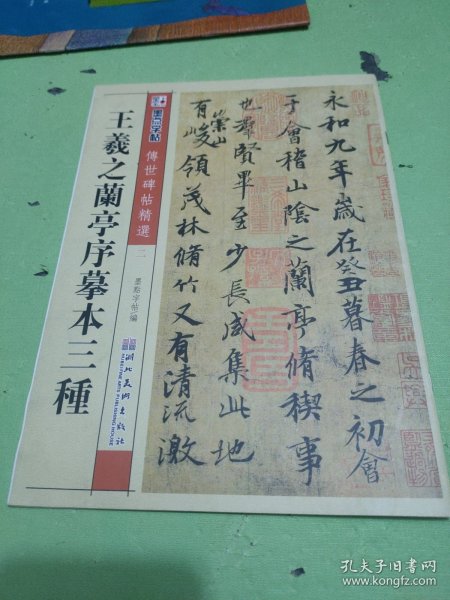 墨点字帖
傳世碑帖精選
二
王羲之蘭亭序摹本三種
墨點字帖編
湖北美術出版社
HUBEI FINE ARTS PUBLISHING HOUSE
永和九年歲在癸丑暮春之初會
于會稽山陰之蘭亭脩稧事
也羣賢畢至少長咸集此地
有崇山峻領茂林脩竹又有清流激
孔夫子旧书网
www.kongfz.com